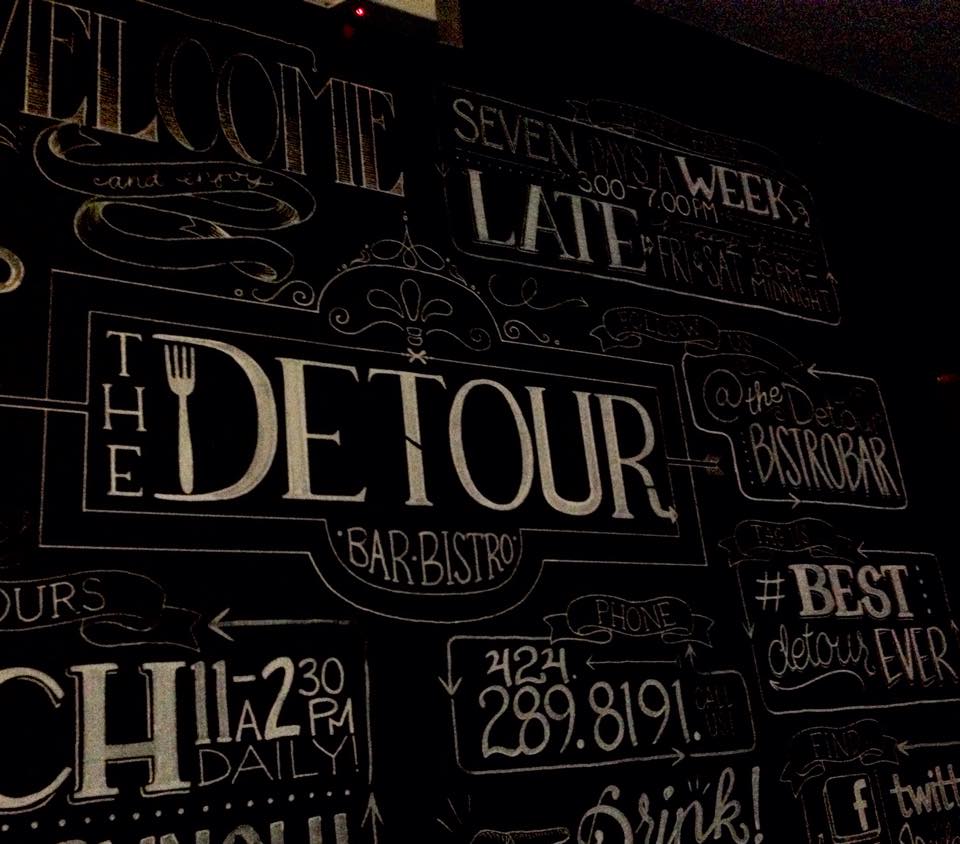 WELCOME
and enjoy
SEVEN DAYS A WEEK
3:00-7:00PM
LATE FRI & SAT 10PM-
MIDNIGHT
FOLLOW US
@the Detour
BISTROBAR
THE DETOUR
BAR·BISTRO
OURS
CH 11-230
A 2 PM
DAILY!
PHONE
424.
289.8191.
CALL
US!
#BEST
detour EVER
FIND
f twitt
Drink!